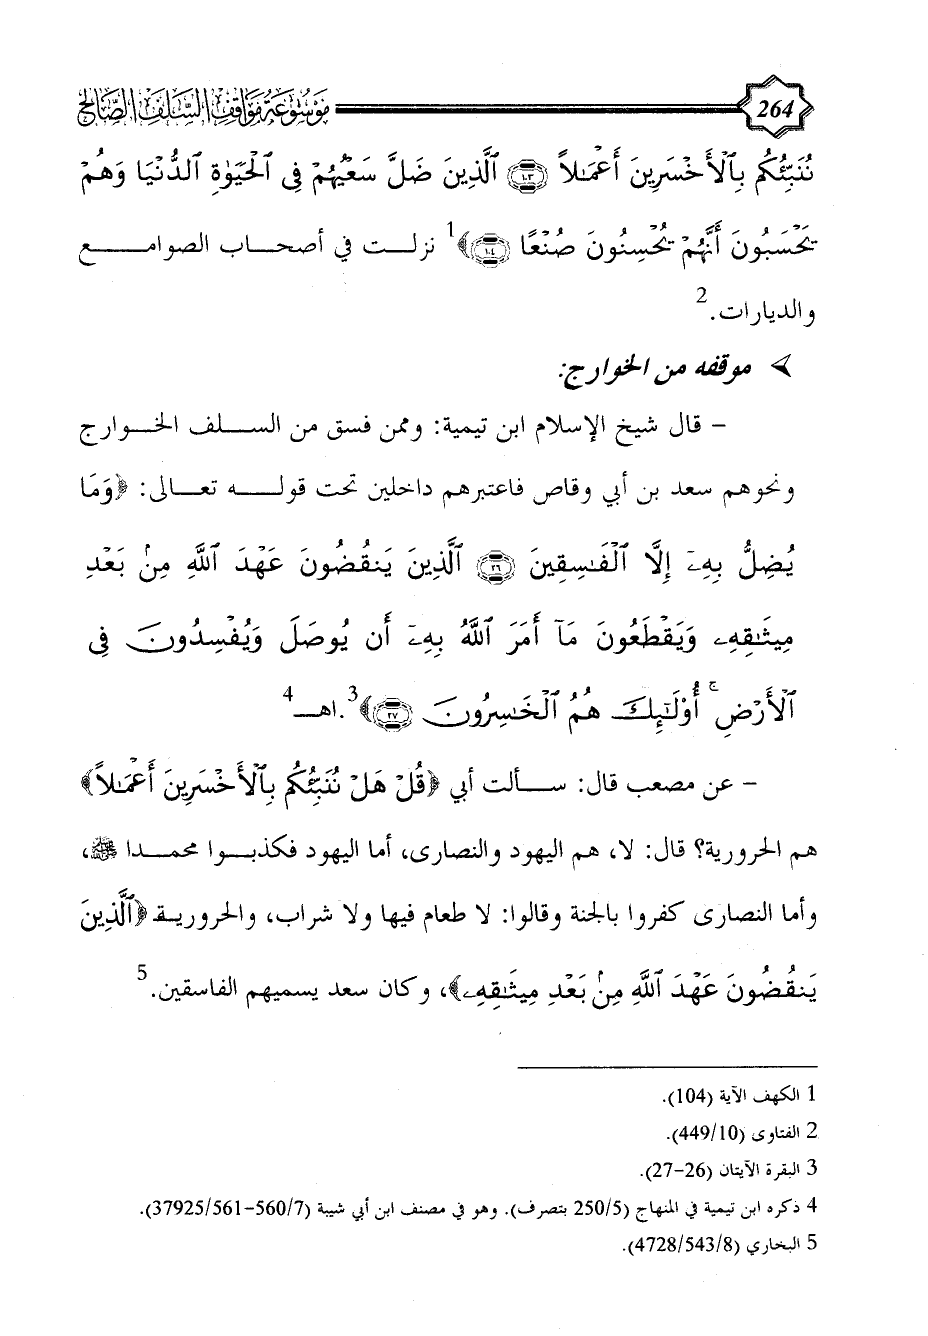 264 موسوعة مواقف السلف الصالح
نُنَبِّئُكُم بِٱلْأَخْسَرِينَ أَعْمَٰلاً ﴿١٠٣﴾ ٱلَّذِينَ ضَلَّ سَعْيُهُمْ فِى ٱلْحَيَوٰةِ ٱلدُّنْيَا وَهُمْ
تَحْسَبُونَ أَنَّهُمْ تُحْسِنُونَ صُنْعًا ﴿١٠٤﴾﴾1 نزلت في أصحاب الصوامع
والديارات.2
موقفه من الخوارج:
- قال شيخ الإسلام ابن تيمية: وممن فسق من السلف الخوارج
ونحوهم سعد بن أبي وقاص فاعتبرهم داخلين تحت قوله تعالى: ﴿وَمَا
يُضِلُّ بِهِۦٓ إِلَّا ٱلْفَٰسِقِينَ ﴿٢٦﴾ ٱلَّذِينَ يَنقُضُونَ عَهْدَ ٱللَّهِ مِنۢ بَعْدِ
مِيثَٰقِهِۦ وَيَقْطَعُونَ مَآ أَمَرَ ٱللَّهُ بِهِۦٓ أَن يُوصَلَ وَيُفْسِدُونَ فِى
ٱلْأَرْضِ ۚ أُوْلَٰٓئِكَ هُمُ ٱلْخَٰسِرُونَ ﴿٢٧﴾﴾3.اهـ4
- عن مصعب قال: سألت أبي ﴿قُلْ هَلْ نُنَبِّئُكُم بِٱلْأَخْسَرِينَ أَعْمَٰلاً﴾
هم الحرورية؟ قال: لا، هم اليهود والنصارى، أما اليهود فكذبوا محمدا ﷺ،
وأما النصارى كفروا بالجنة وقالوا: لا طعام فيها ولا شراب، والحرورية ﴿ٱلَّذِينَ
يَنقُضُونَ عَهْدَ ٱللَّهِ مِنۢ بَعْدِ مِيثَٰقِهِۦ﴾، وكان سعد يسميهم الفاسقين.5
1 الكهف الآية (104).
2 الفتاوى (449/10).
3 البقرة الآيتان (26-27).
4 ذكره ابن تيمية في المنهاج (250/5 بتصرف). وهو في مصنف ابن أبي شيبة (37925/561-560/7).
5 البخاري (4728/543/8).